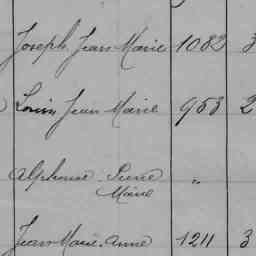 Joseph Jean Marie 1082 3
Louis Jean Marie 953 2
Alphonse Pierre "
Marie
Jean Marie Anne 1211 3